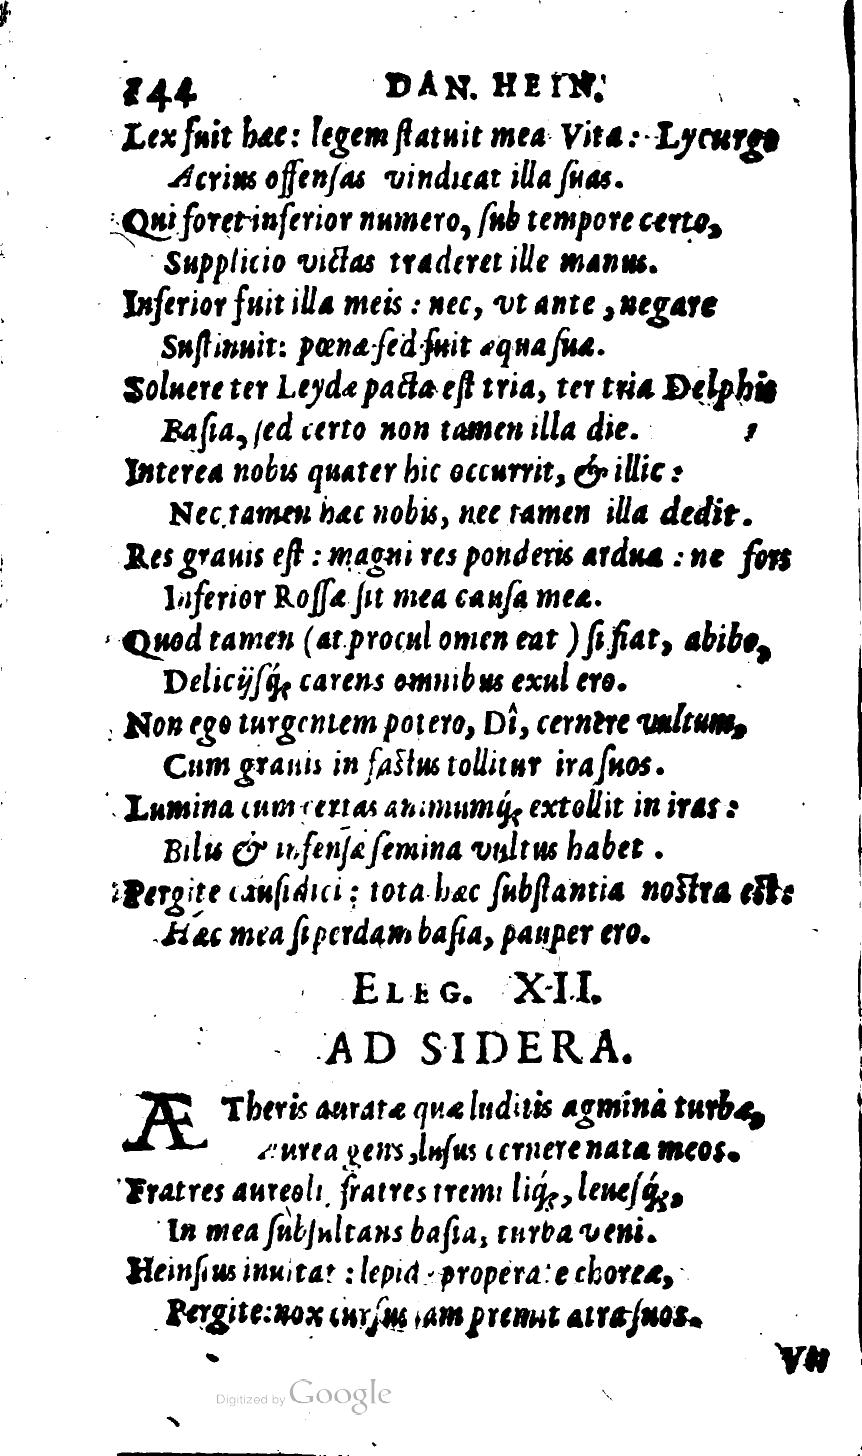 244 DAN. HEIN.
Lex fuit hæc: legem ſtatuit mea Vita: Lycurgo
Acrius offenſas vindicat illa ſuas.
Qui foret inferior numero, ſub tempore certo,
Supplicio victas traderet ille manus.
Inferior fuit illa meis: nec, vt ante, negare
Suſtinuit: pœna ſed fuit æqua ſua.
Soluere ter Leydæ pacta eſt tria, ter tria Delphis
Baſia, ſed certo non tamen illa die.
Interea nobis quater hic occurrit, & illic:
Nec tamen hæc nobis, nec tamen illa dedit.
Res grauis eſt: magni res ponderis ardua: ne fors
Inferior Roſſa ſit mea cauſa mea.
Quod tamen (at procul omen eat) ſi fiat, abibo,
Delicijſq́; carens omnibus exul ero.
Non ego turgentem potero, Dî, cernere vultum,
Cum grauis in faſtus tollitur ira ſuos.
Lumina cum certas animumq́; extollit in iras:
Bilis & infenſæ ſemina vultus habet.
Pergite cauſidici: tota hæc ſubſtantia noſtra eſt:
Hác mea ſi perdam baſia, pauper ero.
ELEG. XII.
AD SIDERA.
ÆTheris auratæ quæ luditis agmina turbæ,
Aurea gens, luſus cernere nata meos.
Fratres aureoli, fratres tremuliq́;, leueſq́;,
In mea ſubſultans baſia, turba veni.
Heinſius inuitat: lepidæ properate choreæ,
Pergite: nox curſus iam premit atra ſuos.
VII
Digitized by Google